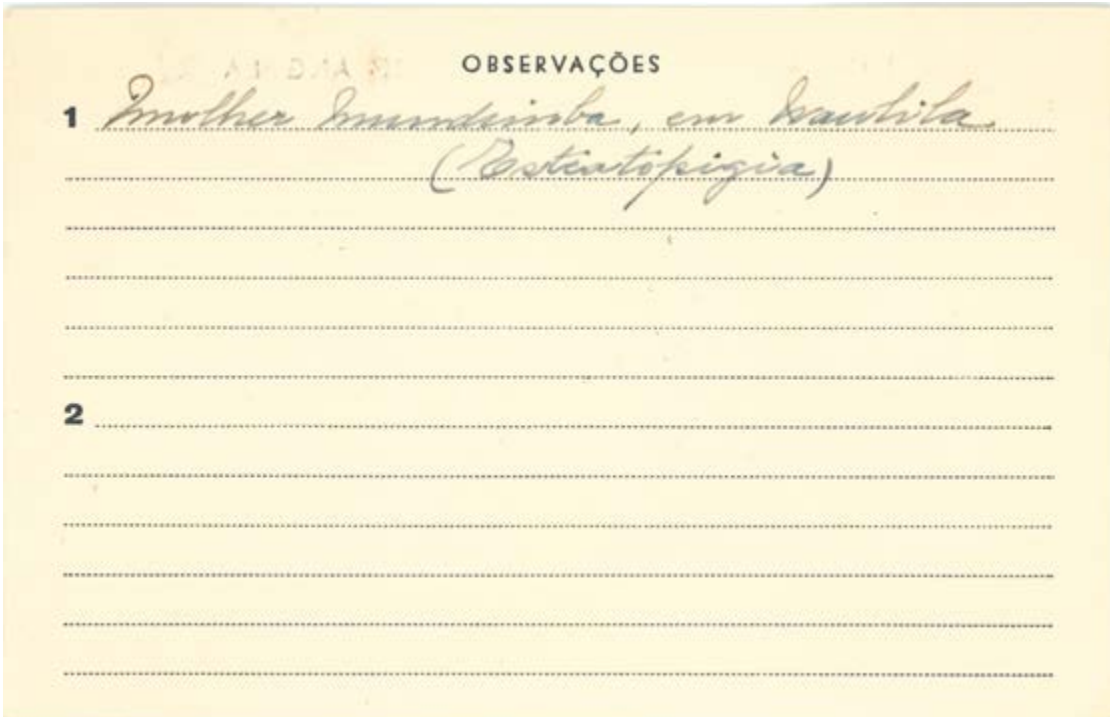 OBSERVAÇÕES
1 Mulher Mundimba, em Naulila
(Esteatopigia)
2